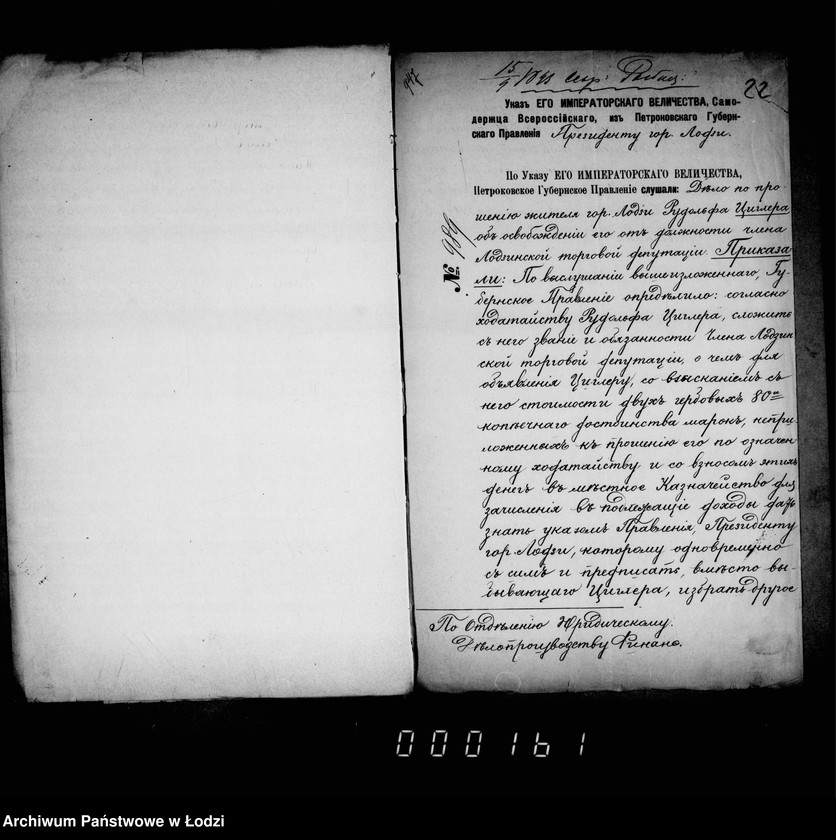 22
15/9 1898
Указъ ЕГО ИМПЕРАТОРСКАГО ВЕЛИЧЕСТВА, Само-
держца Всероссійскаго, изъ Петроковскаго Губерн-
скаго Правленія Президенту гор. Лодзи.
По Указу ЕГО ИМПЕРАТОРСКАГО ВЕЛИЧЕСТВА,
Петроковское Губернское Правленіе слушали: Дѣло по про-
шенію жителя гор. Лодзи Рудольфа Циглера
объ освобожденіи его отъ должности члена
Лодзинской торговой депутаціи. Приказа
ли: По выслушаніи вышеизложеннаго, Гу-
бернское Правленіе опредѣлило: согласно
ходатайству Рудольфа Циглера, сложить
съ него званіе и обязанности Члена Лодзин
ской торговой депутаціи, о чемъ для
объявленія Циглеру, со взысканіемъ съ
него стоимости двухъ гербовыхъ 80
копѣечнаго достоинства марокъ, непри
ложенныхъ къ прошенію его по означен
ному ходатайству и со взносомъ этихъ
денегъ въ мѣстное Казначейство для
зачисленія въ подлежащіе доходы дать
знать указомъ Правленія, Президенту
гор. Лодзи, которому одновременно
съ симъ и предписать, вмѣсто вы-
бывающаго Циглера, избрать другое
№ 989
По Отдѣленію Юридическому.
Дѣлопроизводству Финанс.
000161
Archiwum Państwowe w Łodzi